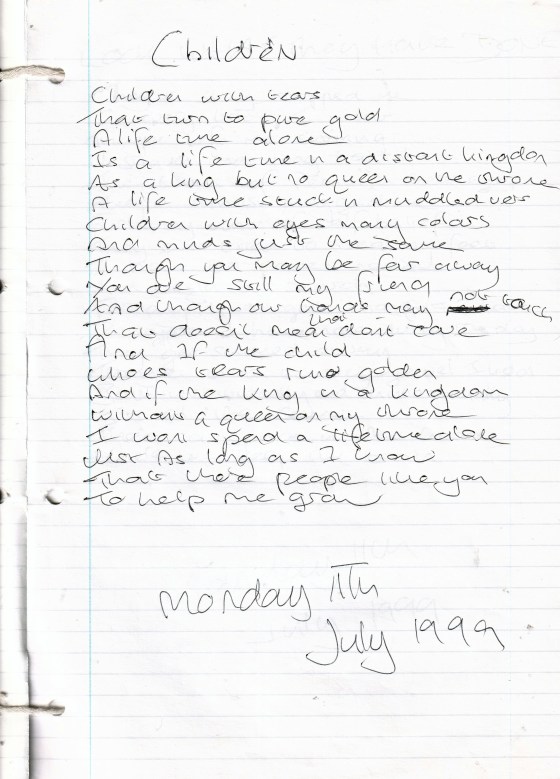 Children
Children with tears
That turn to pure gold
A life time alone
Is a life time in a distant kingdom
As a king but no queen on the throne
A life time stuck in muddled
Children with eyes many colors
And minds just the same
Though you may be far away
You are still my friend
And though our hands may not touch
That doesn't mean that I don't care
And If the child
whoes tears turn golden
And if the king in a kingdom
without a queen on my throne
I wont spend a lifetime alone
Just As long as I know
That there people like you
To help me grow
Monday 11Th
July 1999